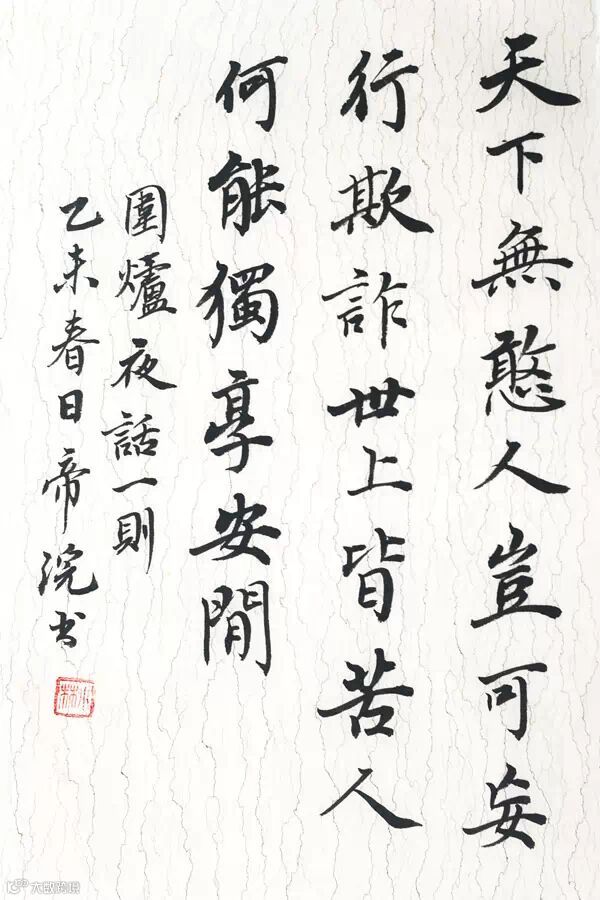 天下無憨人豈可妄
行欺詐世上皆苦人
何能獨享安閒
圍爐夜話一則
乙未春日帝浣书